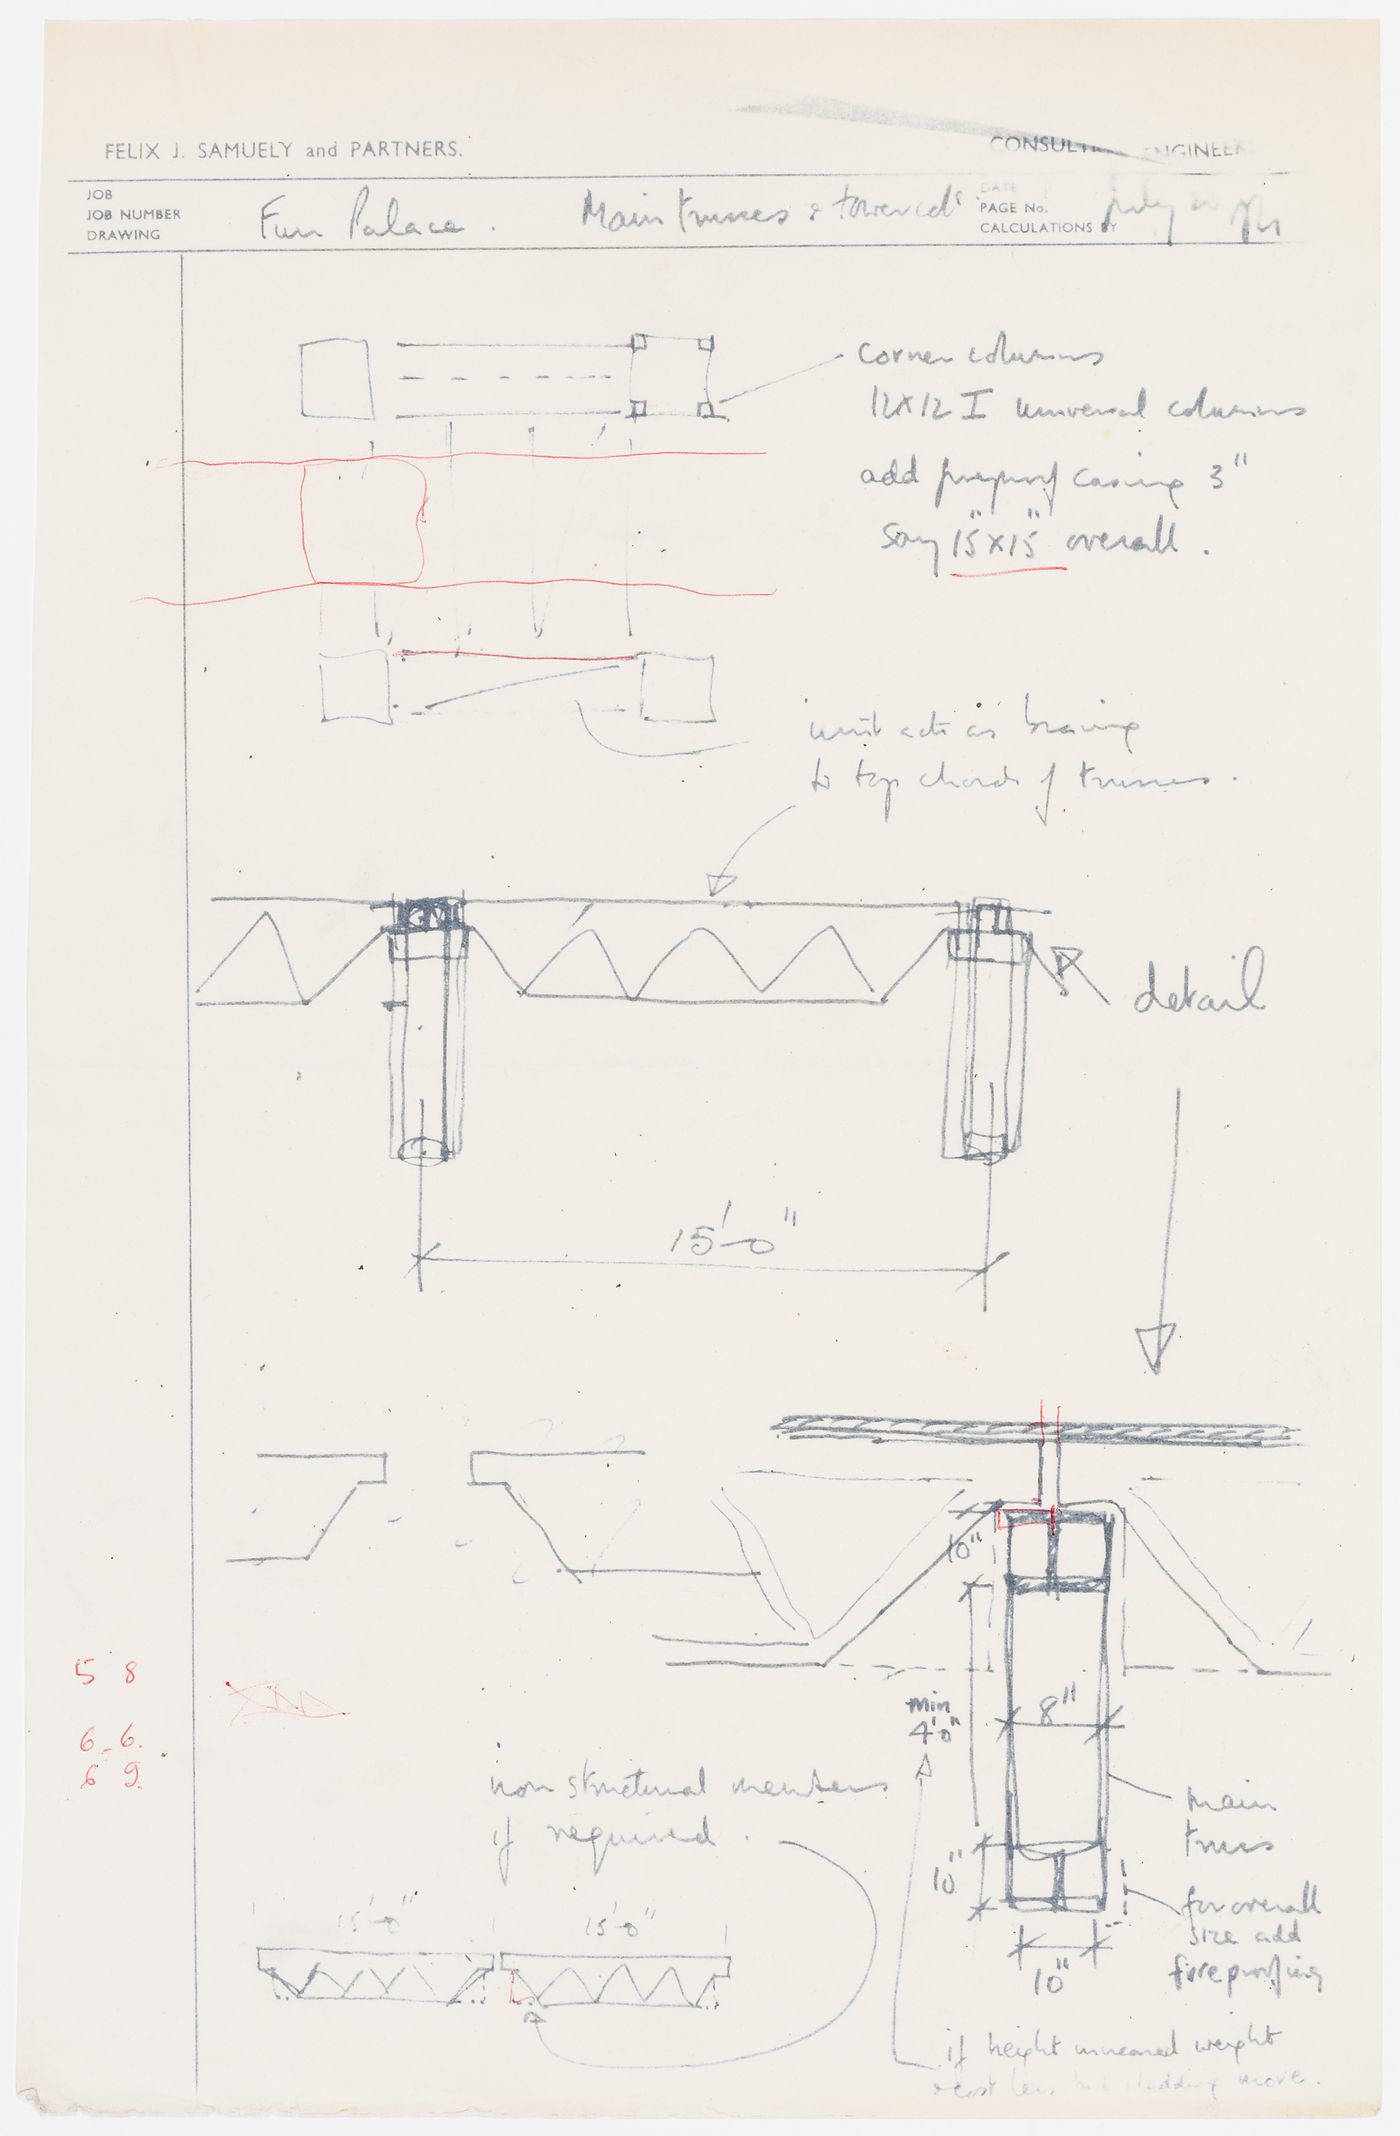 FELIX J. SAMUELY and PARTNERS.
CONSULTING ENGINEER
JOB
JOB NUMBER
DRAWING
Fun Palace.
Main trusses &
DATE
PAGE No.
CALCULATIONS BY
July
corner columns
12x12 I universal columns
add fireproof casing 3"
say 15"x15" overall.
unit acts as bracing
to top chords of trusses.
detail
15'-0"
10"
min
4'0"
8"
main
truss
10"
for overall
size add
fireproofing
10"
5 8
6-6.
6 9.
non structural members
if required.
15'-0"
15'-0"
if height increased weight
& cost less but cladding more.